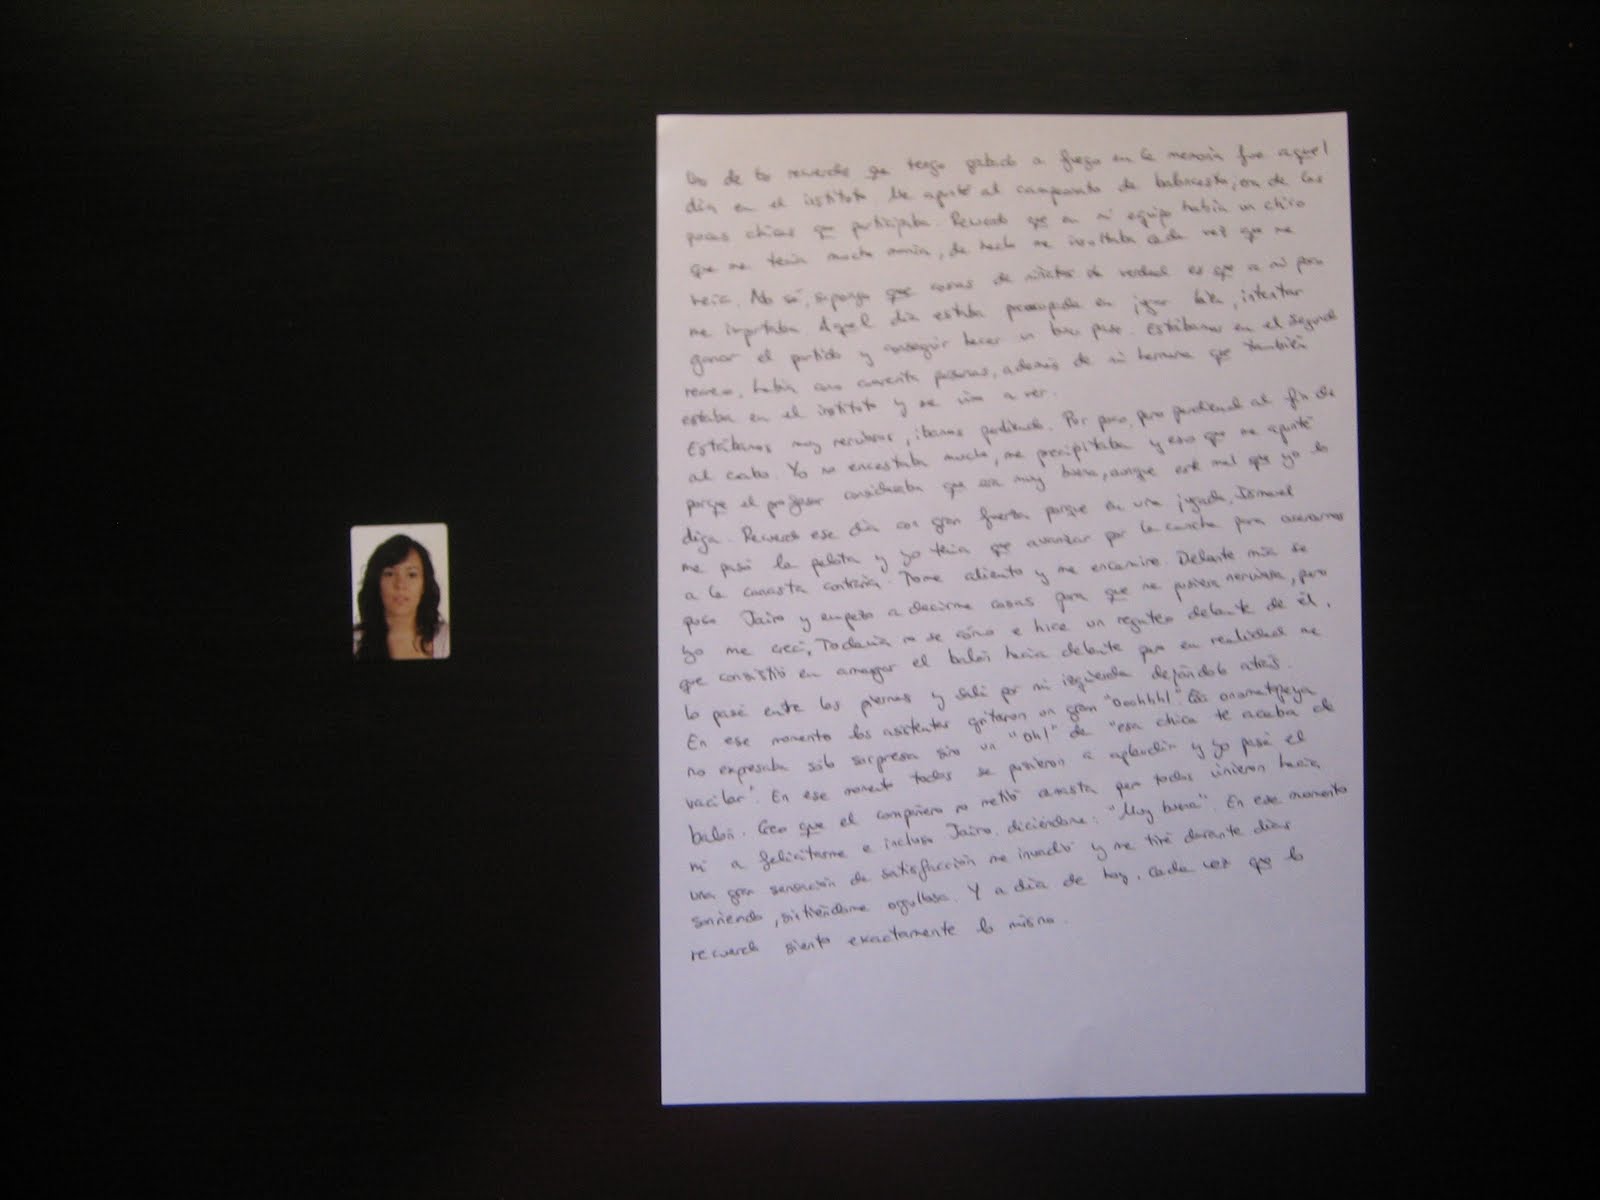 Uno de los recuerdos que tengo grabado a fuego en la memoria fue aquel
día en el instituto. Me apunté al campeonato de baloncesto, era de las
pocas chicas que participaba. Recuerdo que en mi equipo había un chico
que me tenía mucha manía, de hecho me insultaba cada vez que me
veía. No sé, supongo que cosas de niñatos de verdad es que a mi poco
me importaba. Aquel día estaba preocupada en jugar bien, intentar
ganar el partido y conseguir hacer un buen pase. Estábamos en el segundo
recreo, había unas cuarenta personas, además de mi hermana que también
estaba en el instituto y me vino a ver.
Estábamos muy nerviosos, íbamos perdiendo. Por poco, pero perdiendo al fin de
al cabo. Yo no encestaba mucho, me precipitaba y eso que me apunté
porque el profesor consideraba que era muy buena, aunque esté mal que yo lo
diga. Recuerdo ese día con gran fuerza porque en una jugada, Ismael
me pasó la pelota y yo tenía que avanzar por la cancha para acercarnos
a la canasta contraria. Tome aliento y me encamine. Delante mía se
puso Jairo y empezo a decirme cosas para que me pusiera nerviosa, pero
yo me crecí, Todavía no se cómo e hice un regateo delante de él,
que consistió en amagar el balón hacia delante pero en realidad me
lo pasé entre las piernas y salí por mi izquierda dejándolo atrás.
En ese momento los asistentes gritaron un gran "Ooohhhh!" La onomatopeya
no expresaba sólo sorpresa sino un "Oh!" de "esa chica te acaba de
vacilar". En ese momento todos se pusieron a aplaudir y yo pasé el
balón. Creo que el compañero no metió canasta pero todos vinieron hacia
mí a felicitarme e incluso Jairo, diciéndome: "Muy buena". En ese momento
una gran sensación de satisfacción me invadió y me tiré durante días
sonriendo, sintiéndome orgullosa. Y a día de hoy, cada vez que lo
recuerdo siento exactamente lo mismo.